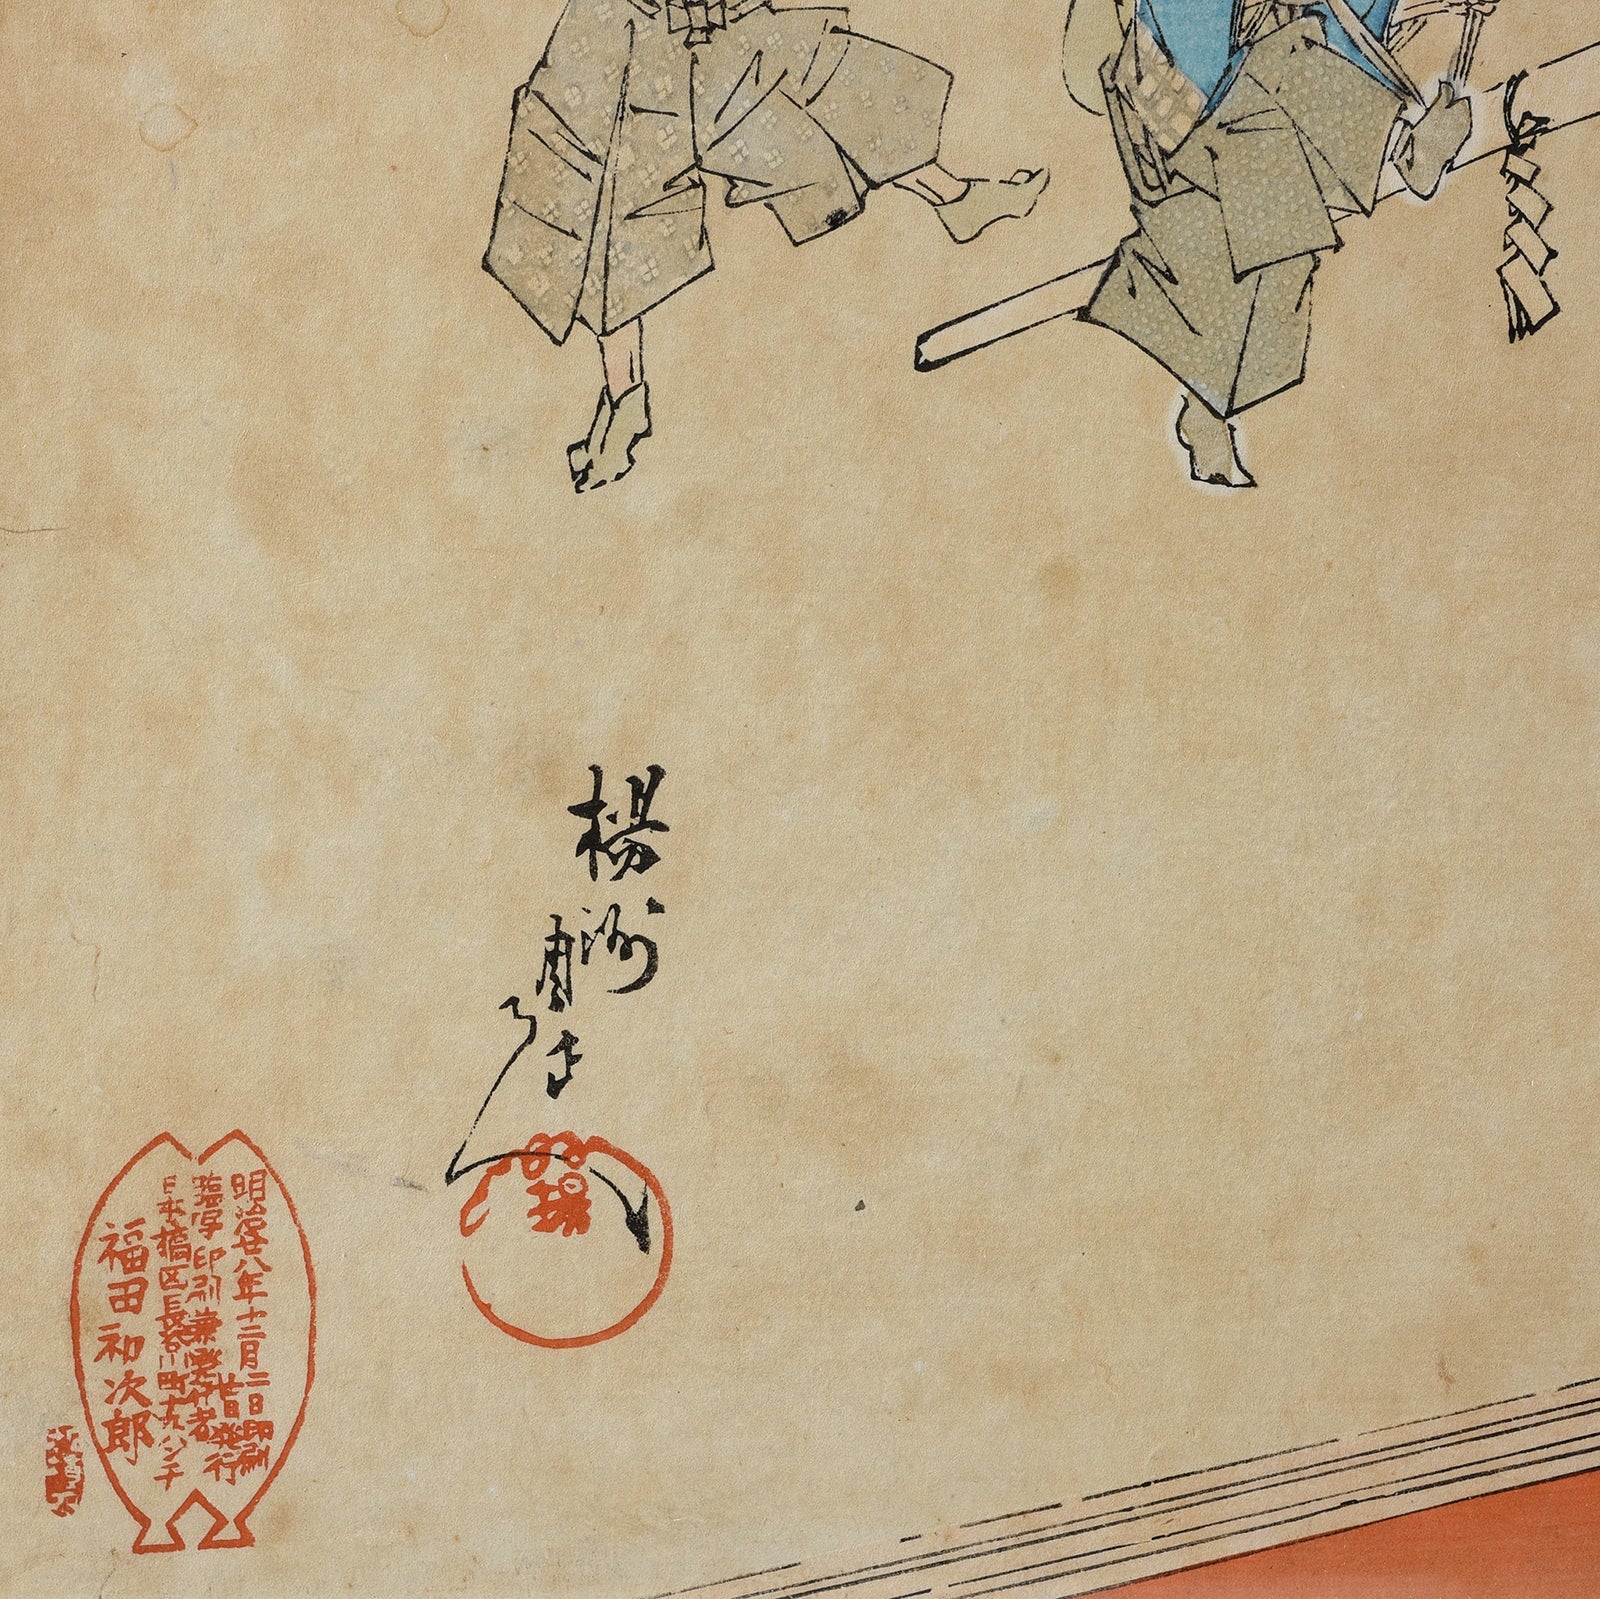 楊洲周延
明治廿八年十二月二日印刷
仝 廿日発行
臨写印刷兼発行者
日本橋区長谷川町十九バンチ
福田初次郎